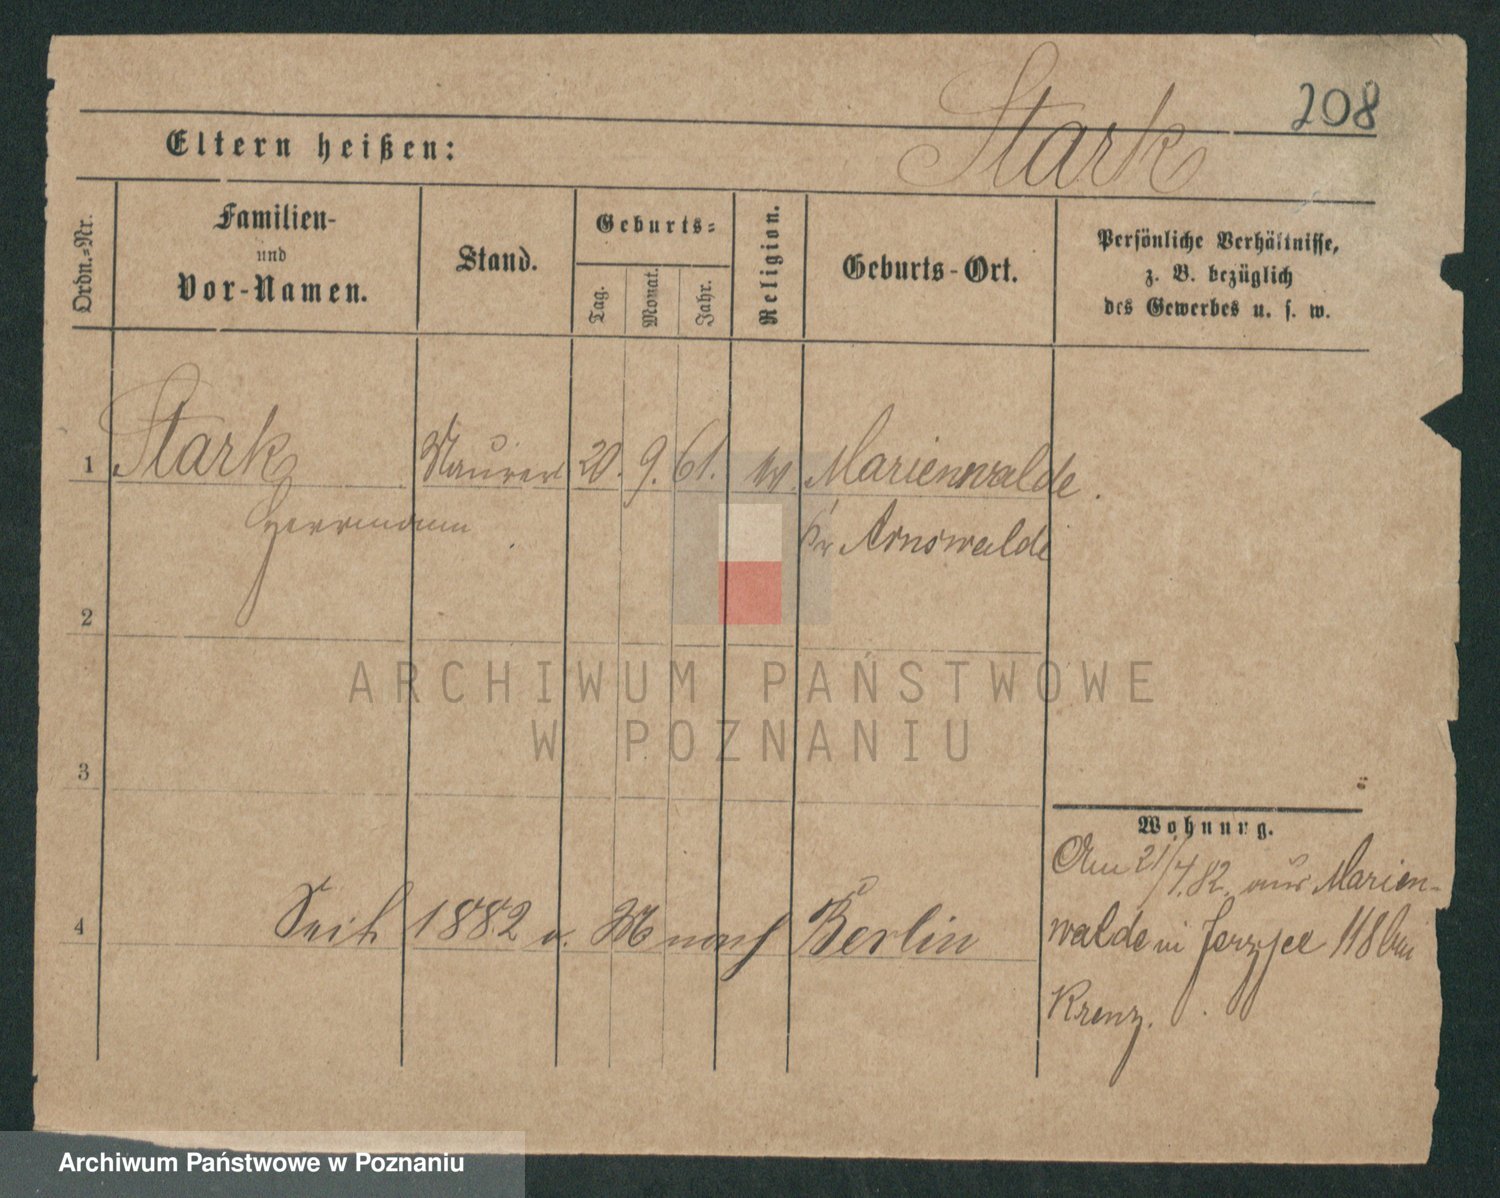 Stark 208
Eltern heißen:
Ordn.-Nr.
Familien-
und
Vor-Namen.
Stand.
Geburts-
Tag.
Monat.
Jahr.
Religion.
Geburts-Ort.
Persönliche Verhältnisse,
z. B. bezüglich
des Gewerbes u. s. w.
1 Stark Maurer 20. 9. 61. Marienwalde.
Herrmann Kr Arnswalde
2
3
4 Seit 1882 nach Berlin
Wohnung.
Am 21/4.82 aus Marien-
walde in 118 bei
Krenz.
ARCHIWUM PAŃSTWOWE
W POZNANIU
Archiwum Państwowe w Poznaniu